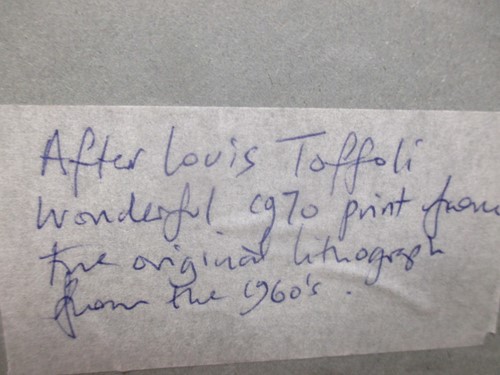 After Louis Toffoli
Wonderful 1970 print from
the original lithograph
from the 1960's.